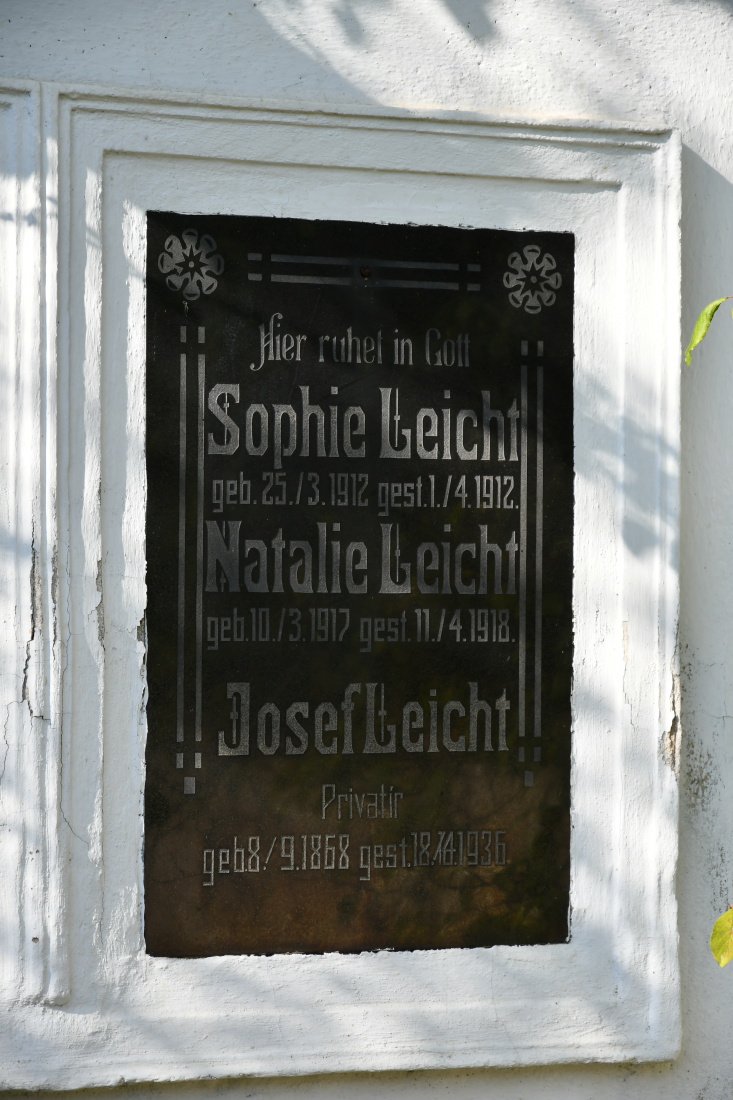 Hier ruhet in Gott
Sophie Leicht
geb. 25./3.1912 gest.1./4.1912.
Natalie Leicht
geb.10./3.1917 gest.11./4.1918.
Josef Leicht
Privatir
geb.8./9.1868 gest.